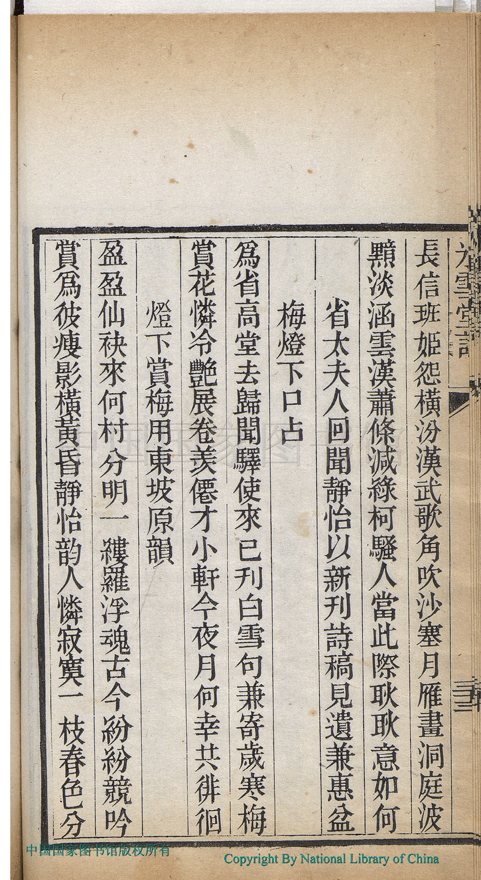 長信班姬怨橫汾漢武歌角吹沙塞月雁畫洞庭波
黯淡涵雲漢蕭條減綠柯騷人當此際耿耿意如何
省太夫人回聞靜怡以新刊詩稿見遺兼惠盆
梅燈下口占
為省高堂去歸聞驛使來已刊白雪句兼寄歲寒梅
賞花憐冷艷展卷羨僊才小軒今夜月何幸共徘徊
燈下賞梅用東坡原韻
盈盈仙袂來何村分明一縷羅浮魂古今紛紛競吟
賞為彼瘦影橫黃昏靜怡韵人憐寂寞一枝春色分
中国国家图书馆版权所有
Copyright By National Library of China